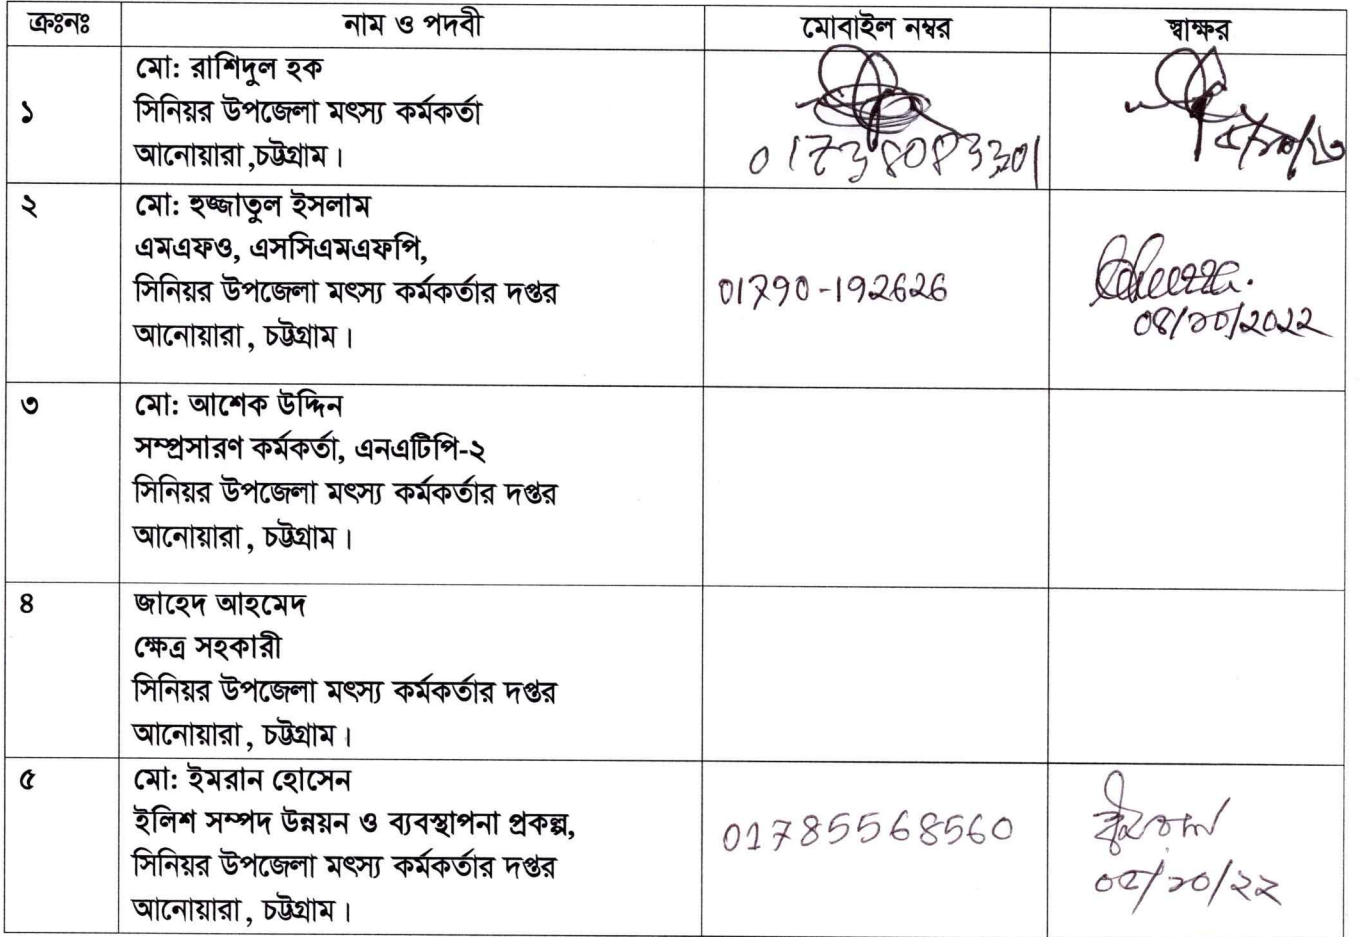 ক্রঃনঃ নাম ও পদবী মোবাইল নম্বর স্বাক্ষর
১
মো: রাশিদুল হক
সিনিয়র উপজেলা মৎস্য কর্মকর্তা
আনোয়ারা,চট্টগ্রাম।
01738083301
২
মো: হুজ্জাতুল ইসলাম
এমএফও, এসসিএমএফপি,
সিনিয়র উপজেলা মৎস্য কর্মকর্তার দপ্তর
আনোয়ারা, চট্টগ্রাম।
01790-192626
০৪/১০/২০২২
৩
মো: আশেক উদ্দিন
সম্প্রসারণ কর্মকর্তা, এনএটিপি-২
সিনিয়র উপজেলা মৎস্য কর্মকর্তার দপ্তর
আনোয়ারা, চট্টগ্রাম।
৪
জাহেদ আহমেদ
ক্ষেত্র সহকারী
সিনিয়র উপজেলা মৎস্য কর্মকর্তার দপ্তর
আনোয়ারা, চট্টগ্রাম।
৫
মো: ইমরান হোসেন
ইলিশ সম্পদ উন্নয়ন ও ব্যবস্থাপনা প্রকল্প,
সিনিয়র উপজেলা মৎস্য কর্মকর্তার দপ্তর
আনোয়ারা, চট্টগ্রাম।
01785568560